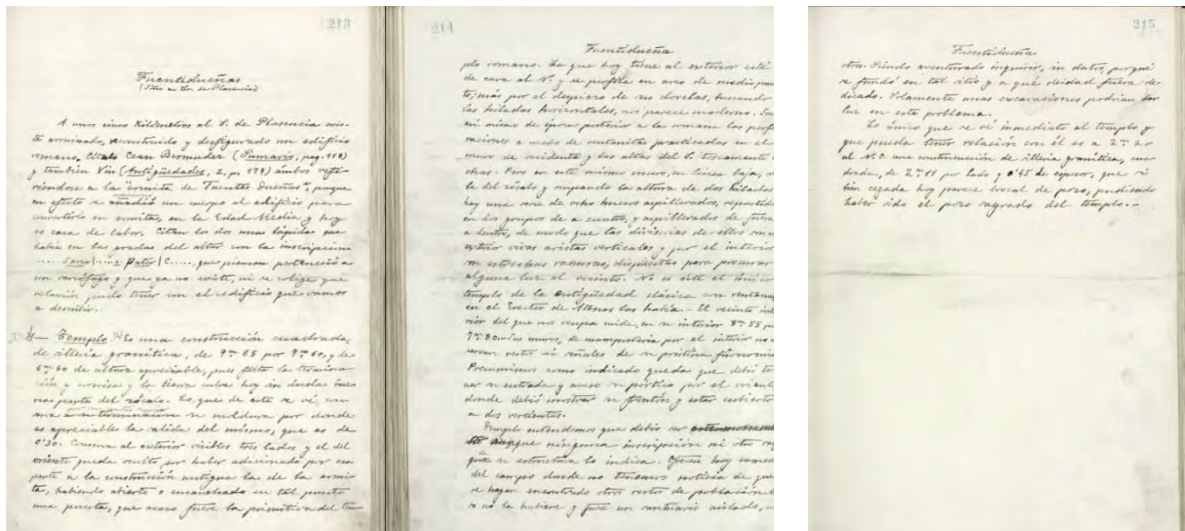 213
Fuentidueñas
(Sitio en tér. de Plasencia)
A unos cinco Kilómetros al S. de Plasencia exis-
te arruinado, reconstruido y desfigurado un edificio
romano. Cítalo Cean Bermudez (Sumario, pag. 418)
y tambien Viu (Antigüedades, I. p. 179) ambos refi-
riendose a la "ermita de Fuentes Dueñas", porque
en efecto se añadió un cuerpo al edificio para
convertirlo en ermita, en la Edad Media y hoy
es casa de labor. Citan los dos unas lápidas que
había en las gradas del altar con la inscripcion
que piensan perteneció a
un sarcófago y que ya no existe, ni se colige que
relación pudo tener con el edificio que vamos
a describir.
— Templo. Es una construcción cuadrada,
de sillería granítica, de 9m 65 por 9m 60, y de
6m 60 de altura apreciable, pues falta la termina-
ción y cornisa y la tierra cubre hoy sin duda bue-
na parte del zócalo. Lo que de este se vé, con-
serva su moldura por donde
es apreciable la salida del mismo, que es de
0'30. Conserva al exterior visibles tres lados y el del
oriente queda oculto por haber adicionado por esa
parte a la construcción antigua la de la ermi-
ta, habiendo abierto o ensanchado en tal punto
una puerta, que acaso fuese la primitiva del tem-
214
Fuentidueña
plo romano. La que hoy tiene al exterior está
de cara al N. y se perfila en arco de medio pun-
to; mas por el despiezo de sus dovelas, buscando
las hiladas horizontales, nos parece moderno. Son
así mismo de época posterior a la romana las perfo-
raciones a modo de ventanitas practicadas en el
muro de occidente y las altas del S. toscamente
chas. Pero en este mismo muro, en línea baja, so-
la del zócalo y ocupando la altura de dos hiladas
hay una serie de ocho huecos aspillerados, repartidos
en dos grupos de a cuatro, y aspillerados de fuera
a dentro, de modo que las divisorias de ellos son al
exterior vivas aristas verticales y por el interior
son estrechas ranuras, dispuestas para procurar
alguna luz al recinto. No es este el único
templo de la antigüedad clásica con ventanas
en el Erecteo de Atenas las había. – El recinto inte-
rior del que nos ocupa mide, en su interior 8m 55 por
7m 80. Sus muros, de mampostería por el interior no con-
servan restos ni señales de su prístina fisonomía.
Presumimos como indicado queda que debió te-
ner su entrada y acaso su pórtico por el oriente
donde debió mostrar su frontón y estar cubierto
a dos vertientes.
Templo entendemos que debió ser
aunque ninguna inscripción ni otro ras-
go que su estructura lo indica. Ofrece hoy
del campo donde no tenemos noticia de que
se hayan encontrado otros restos de población.
si no la hubiere y fué un santuario aislado,
215
Fuentidueña
otro. Siendo aventurado inquirir, sin datos, porqué
se fundó en tal sitio y a qué deidad fuera de-
dicado. Solamente unas excavaciones podrían dar
luz en este problema.
Lo único que se vé inmediato al templo y
que pueda tener relación con él es a 2m 20
al N.O. una construcción de sillería granítica, cua-
drada, de 2m 11 por lado y 0'45 de espesor, que si
bien cegada hoy parece brocal de pozo, pudiendo
haber sido el pozo sagrado del templo. –